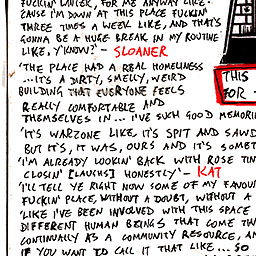 FUCKIN' DANCER, FOR ME ANYWAY LIKE.
'CAUSE I'M DOWN AT THIS PLACE FUCKIN'
THREE TIMES A WEEK LIKE, AND THAT'S
GONNA BE A HUGE BREAK IN MY ROUTINE
LIKE, Y'KNOW?' - SLOANER
'THE PLACE HAD A REAL HOMELINESS
...IT'S A DIRTY, SMELLY, WEIRD
BUILDING THAT EVERYONE FEELS
REALLY COMFORTABLE AND
THEMSELVES IN... I'VE SUCH GOOD MEMORI
'IT'S WARZONE LIKE, IT'S SPIT AND SAWD
BUT IT'S, IT WAS, OURS AND IT'S SOMET
'I'M ALREADY LOOKIN' BACK WITH ROSE TIN
CLOSIN' [LAUGHS] HONESTLY' - KAT
'I'LL TELL YE RIGHT NOW SOME OF MY FAVOU
FUCKIN' PLACE, WITHOUT A DOUBT, WITHOUT A
'LIKE I'VE BEEN INVOLVED WITH THIS SPACE
DIFFERENT HUMAN BEINGS THAT COME TH
CONTINUALLY AS A COMMUNITY RESOURCE, AN
YOU WANT TO CALL IT THAT LIKE... SO
THIS
FOR